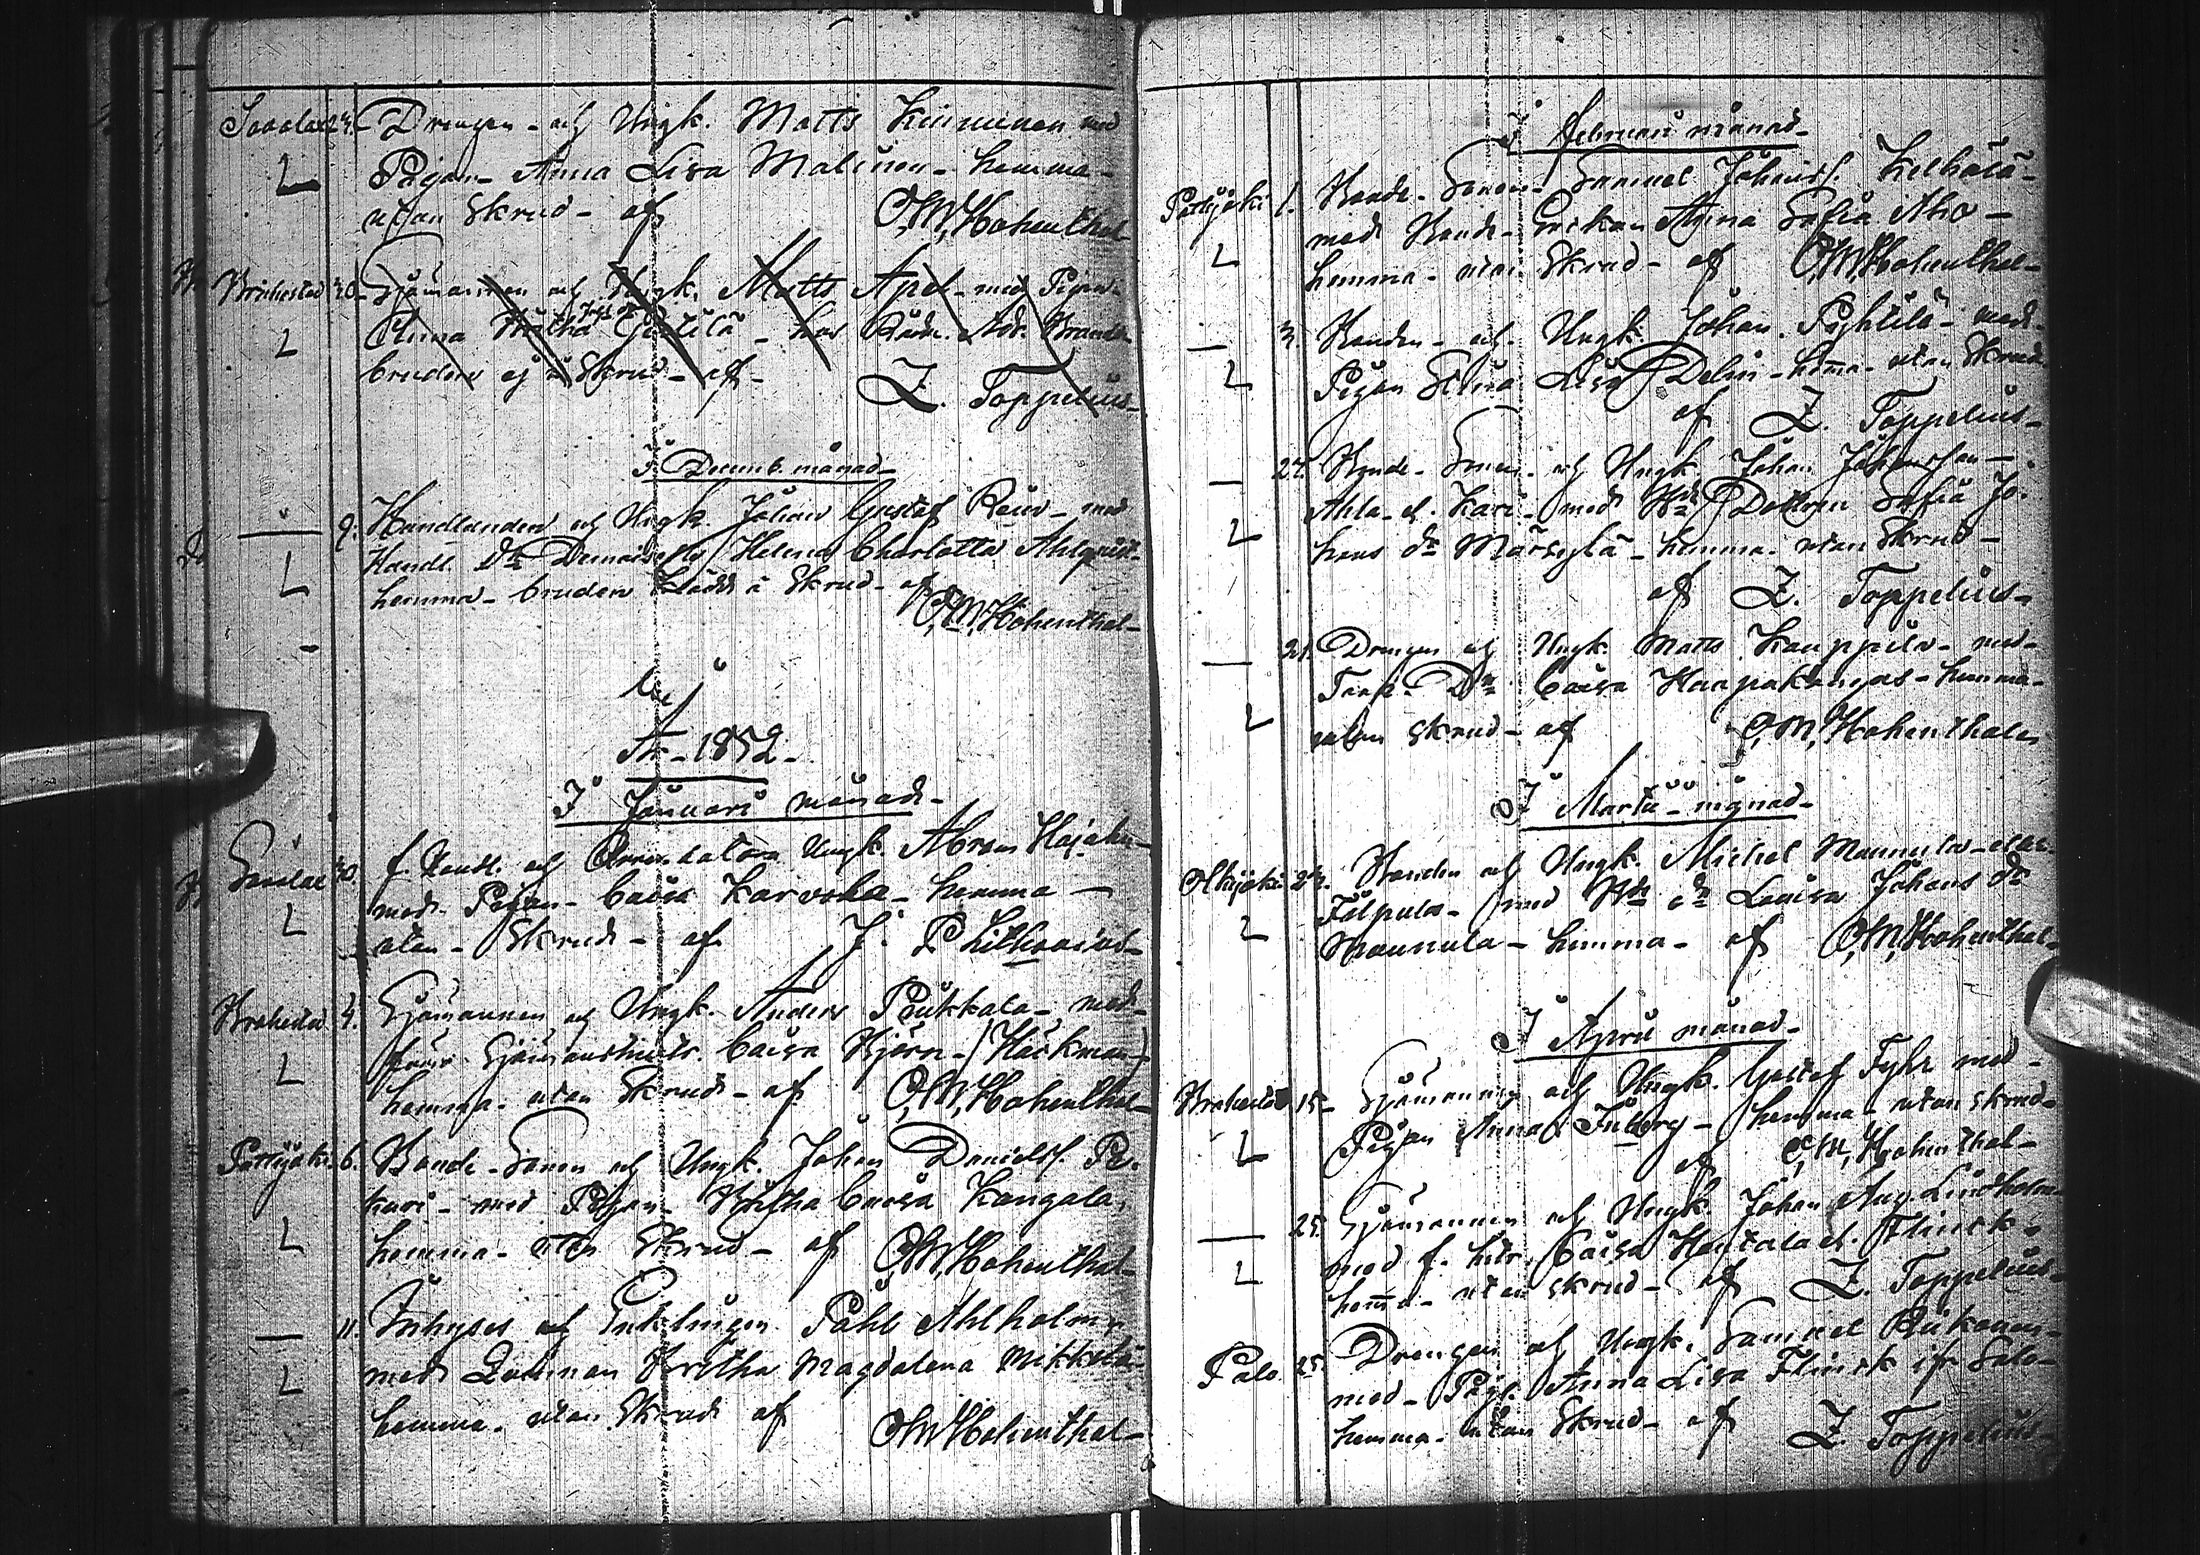 Savolax 24. Drengen och Ungk. Matts Kinnunen med
Pigan Anna Lisa Malinen - hemma -
utan Skrud - af O,M,Hohenthal
Brahestad 30. Sjömannen och Ungk. Matts Apel - med Pigan
Anna - hos Rådm. Ad.
bruden ej i Skrud - af - Z. Toppelius -
I Decemb. månad -
9. Handlanden och Ungk. Johan Gustaf Reuv - med
Handl. Dtr Demoiselle Helena Charlotta Ahlqvist
hemma - bruden klädd i Skrud - af
O,M,Hohenthal -
År - 1852 -
I Januari månad -
f. Handl. och Arrendatorn Ungk. Abram
med Pigan - Caisa Karvola - hemma -
utan - Skrud - af J. P.
Brahestad 4. Sjömannen och Ungk. Anders Pukkala - med
Caisa Björn - (Häckman)
hemma - utan Skrud - af O,M,Hohenthal -
Pattijoki 6. Bonde - Sonen och Ungk. Johan Danielss. Pe.
kari - med Pigan Britha Caisa Kangala
hemma - utan Skrud - af O,M,Hohenthal -
11. Inhyses och Enklingen Påhl Ahlholm
med Qvinnan Britha Magdalena Mikkola
hemma - utan Skrud af
O,M,Hohenthal -
I Februari månad -
Pattijoki 1. Bonde - Sonen - Samuel Johanss. Kelhälä -
med Bonde - Enkan Anna Sofia Aho -
hemma - utan Skrud - af O,M,Hohenthal -
3. Bonden - och Ungk. Johan Pyhtilä - med
Pigan Stina Lisa Delin - hemma - utan Skrud
af Z. Toppelius -
24. Bonde - Sonen - och Ungk. Johan Johansson -
Ahla - el. Kari - med Bde Dottren Sofia Jo.
hans dr Märsylä - hemma - utan Skrud -
af Z. Toppelius -
21. Drengen och Ungk. Matts Kauppila - med -
Torp. Dtr Caisa Haapakangas - hemma -
utan skrud - af O,M,Hohenthal -
I Martii - månad -
Olkijoki 24. Bonden och Ungk. Michel Mannula - eller
Fälpula - med Bde dr Lovisa Johans dr
Mannula - hemma - af O,M,Hohenthal -
I April månad -
Brahestad 15 - Sjömannen och Ungk. Gustaf Fyhr med -
Pigan Anna Inberg - hemma - utan skrud -
af O,M,Hohenthal -
25. Sjömannen och Ungk. Johan Aug. Lindholm
med Caisa Hentala el. Flinck -
hemma - utan skrud - af Z. Toppelius -
Palo 25 Drengen och Ungk. Samuel
med - Pigan Anna Lisa Flinck
hemma - utan Skrud - af Z. Toppelius